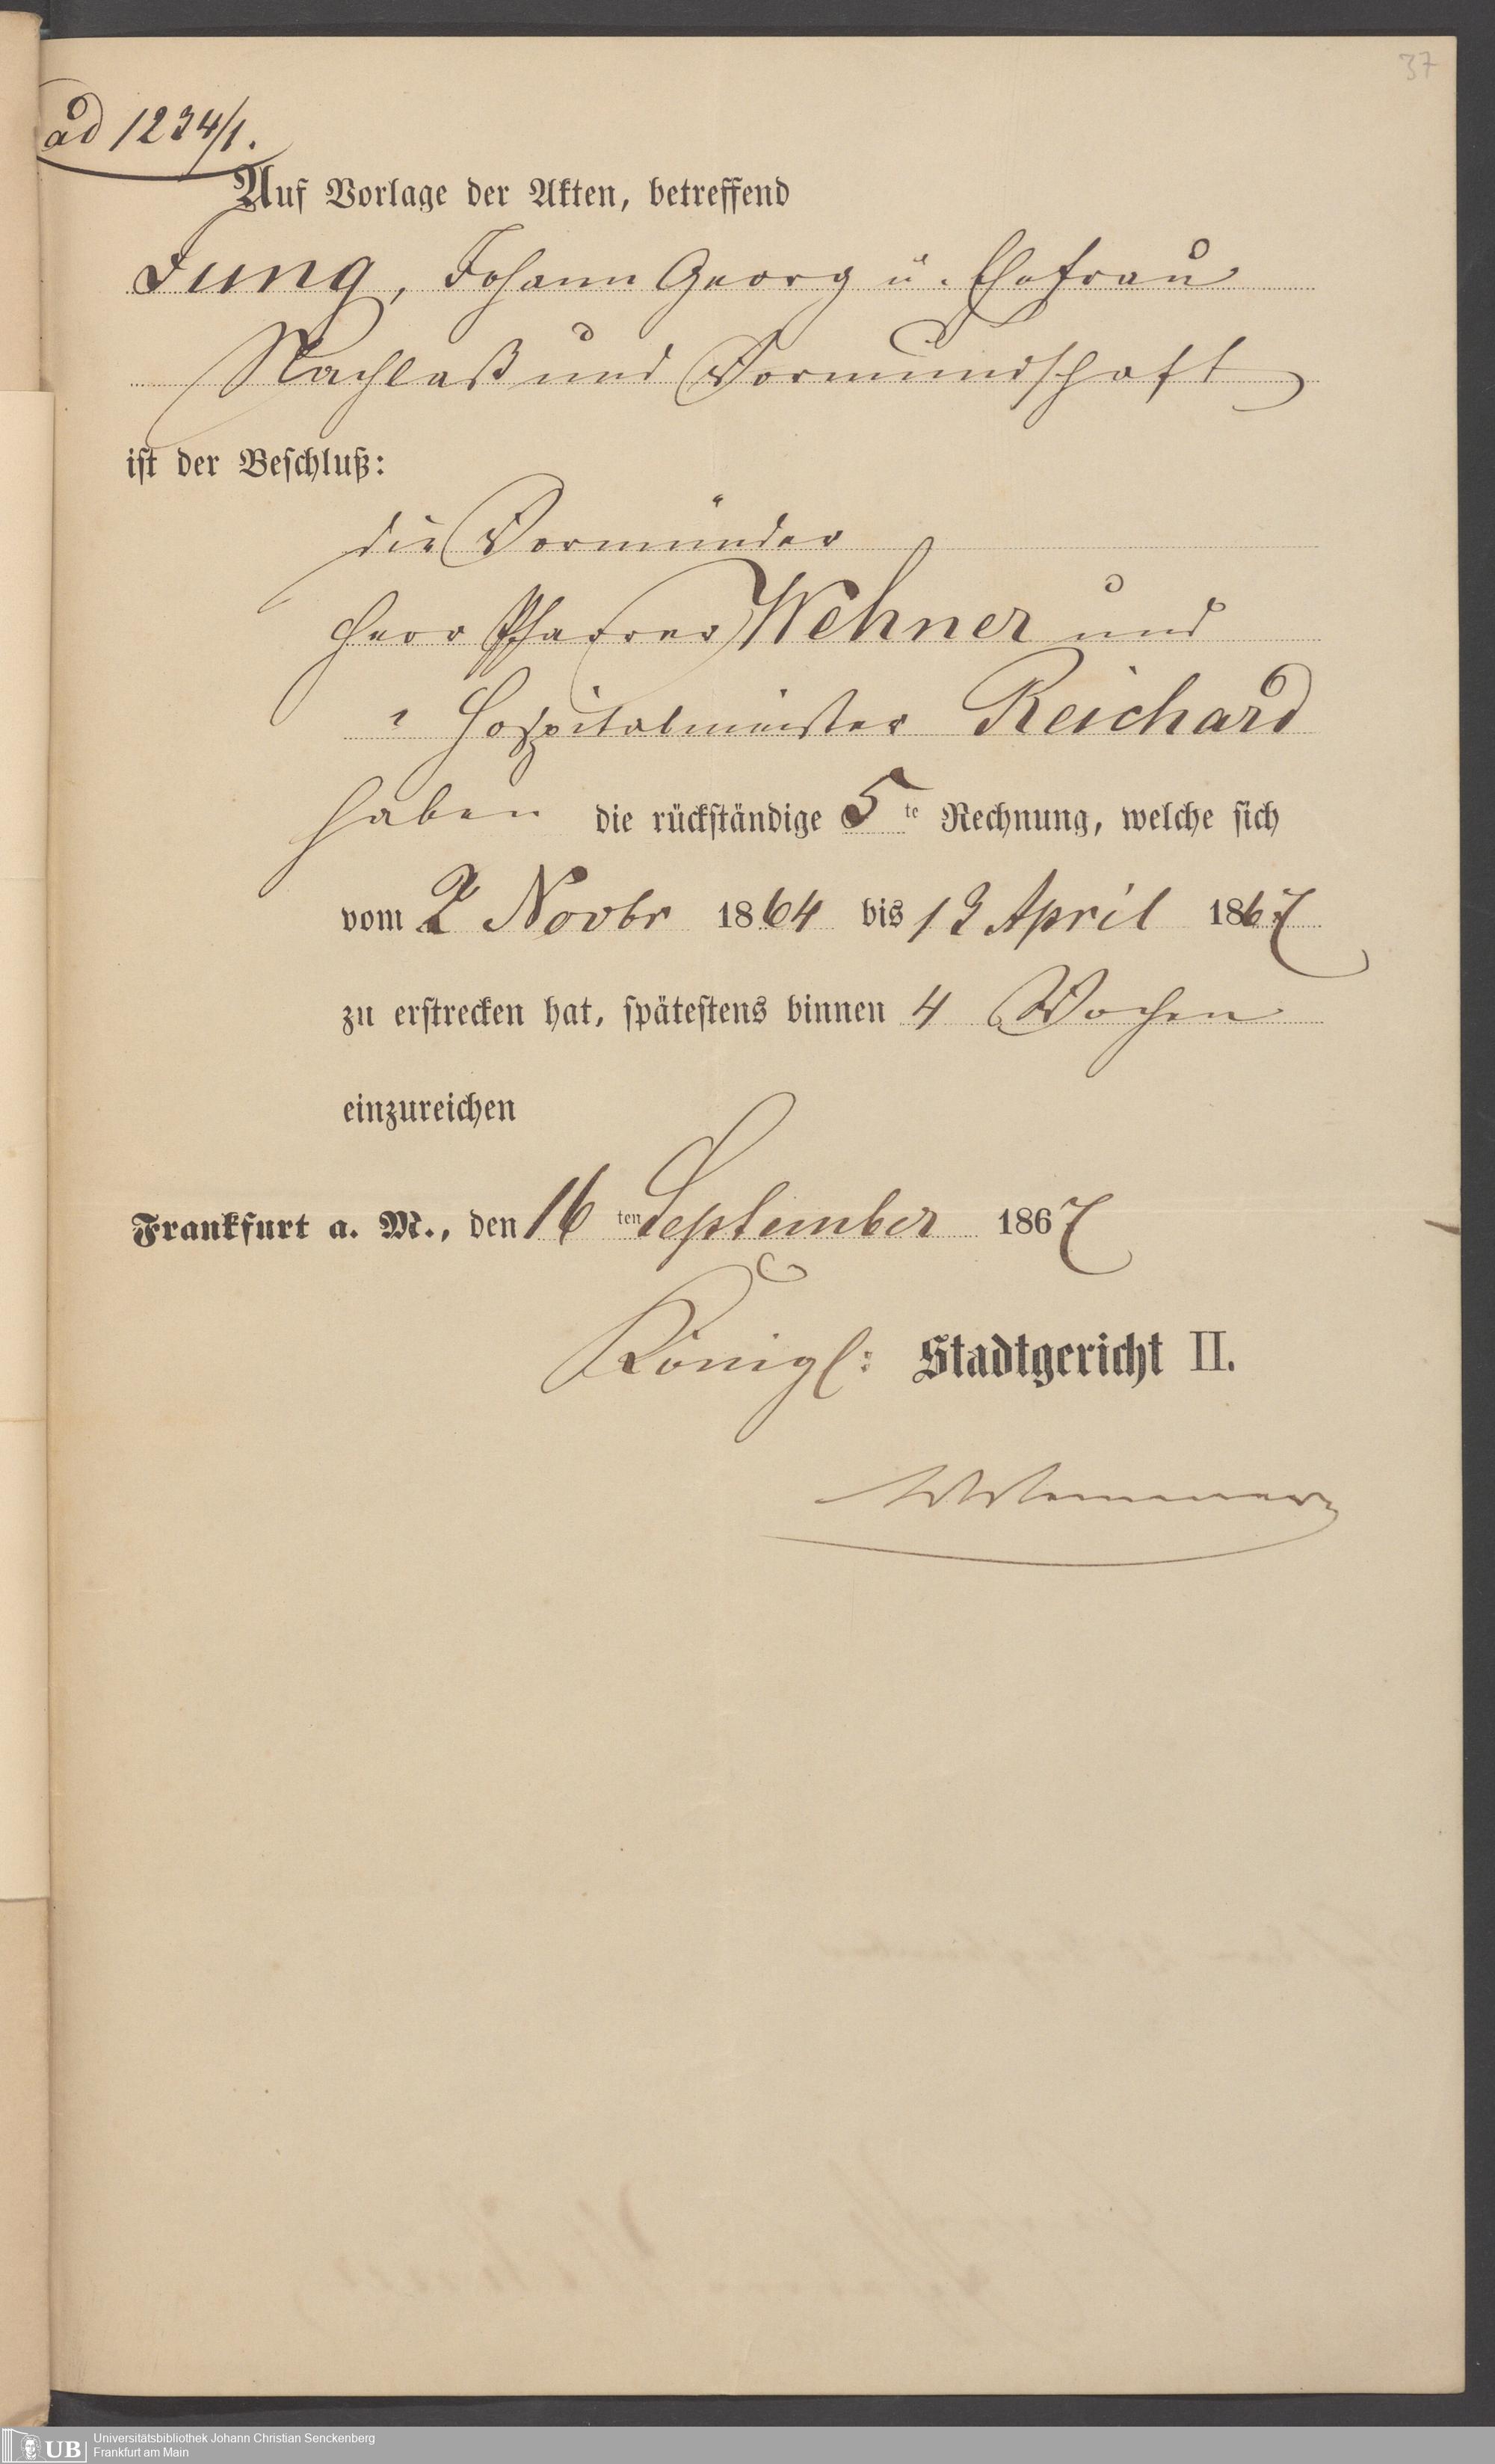 37
ad 1234/1.
Auf Vorlage der Akten, betreffend
Jung, Johann Georg u. Ehefrau
Nachlaß und Vormundschaft
ist der Beschluß:
die Vormünder
Herr Pfarrer Wehner und
" Hospitalmeister Reichard
haben die rückständige 5te Rechnung, welche sich
vom 2 Novbr 1864 bis 13 April 1867
zu erstrecken hat, spätestens binnen 4 Wochen
einzureichen
Frankfurt a. M., den 16ten September 1867
Königl: Stadtgericht II.
UB Universitätsbibliothek Johann Christian Senckenberg
Frankfurt am Main